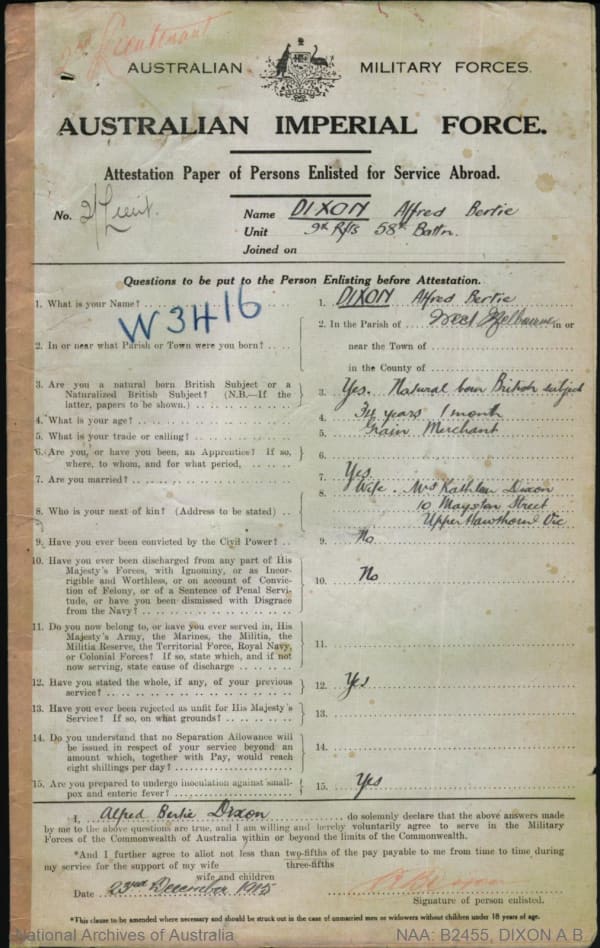 2nd Lieutenant
AUSTRALIAN MILITARY FORCES.
AUSTRALIAN IMPERIAL FORCE.
Attestation Paper of Persons Enlisted for Service Abroad.
No. 2/Lieut. Name DIXON Alfred Bertie
Unit 9th Rfts 58th Battn.
Joined on
Questions to be put to the Person Enlisting before Attestation.
W3416
1. What is your Name? 1. DIXON Alfred Bertie
2. In or near what Parish or Town were you born? 2. In the Parish of West Melbourne in or
near the Town of
in the County of
3. Are you a natural born British Subject or a
Naturalized British Subject? (N.B.—If the
latter, papers to be shown.) 3. Yes. Natural born British subject
4. What is your age? 4. 34 years 1 month
5. What is your trade or calling? 5. Grain Merchant
6. Are you, or have you been, an Apprentice? If so,
where, to whom, and for what period, 6.
7. Are you married? 7. Yes
8. Who is your next of kin? (Address to be stated) 8. Wife. Mrs Kathleen Dixon
10 Mayston Street
Upper Hawthorn Vic
9. Have you ever been convicted by the Civil Power? 9. No
10. Have you ever been discharged from any part of His
Majesty's Forces, with Ignominy, or as Incor-
rigible and Worthless, or on account of Convic-
tion of Felony, or of a Sentence of Penal Servi-
tude, or have you been dismissed with Disgrace
from the Navy? 10. No
11. Do you now belong to, or have you ever served in, His
Majesty's Army, the Marines, the Militia, the
Militia Reserve, the Territorial Force, Royal Navy,
or Colonial Forces? If so, state which, and if not
now serving, state cause of discharge 11.
12. Have you stated the whole, if any, of your previous
service? 12. Yes
13. Have you ever been rejected as unfit for His Majesty's
Service? If so, on what grounds? 13.
14. Do you understand that no Separation Allowance will
be issued in respect of your service beyond an
amount which, together with Pay, would reach
eight shillings per day? 14.
15. Are you prepared to undergo inoculation against small-
pox and enteric fever? 15. Yes
I, Alfred Bertie Dixon do solemnly declare that the above answers made
by me to the above questions are true, and I am willing and hereby voluntarily agree to serve in the Military
Forces of the Commonwealth of Australia within or beyond the limits of the Commonwealth.
*And I further agree to allot not less than two-fifths of the pay payable to me from time to time during
three-fifths
my service for the support of my wife
wife and children
Date 23rd December 1915
A B Dixon
Signature of person enlisted.
*This clause to be amended where necessary and should be struck out in the case of unmarried men or widowers without children under 18 years of age.
National Archives of Australia NAA: B2455, DIXON A.B.